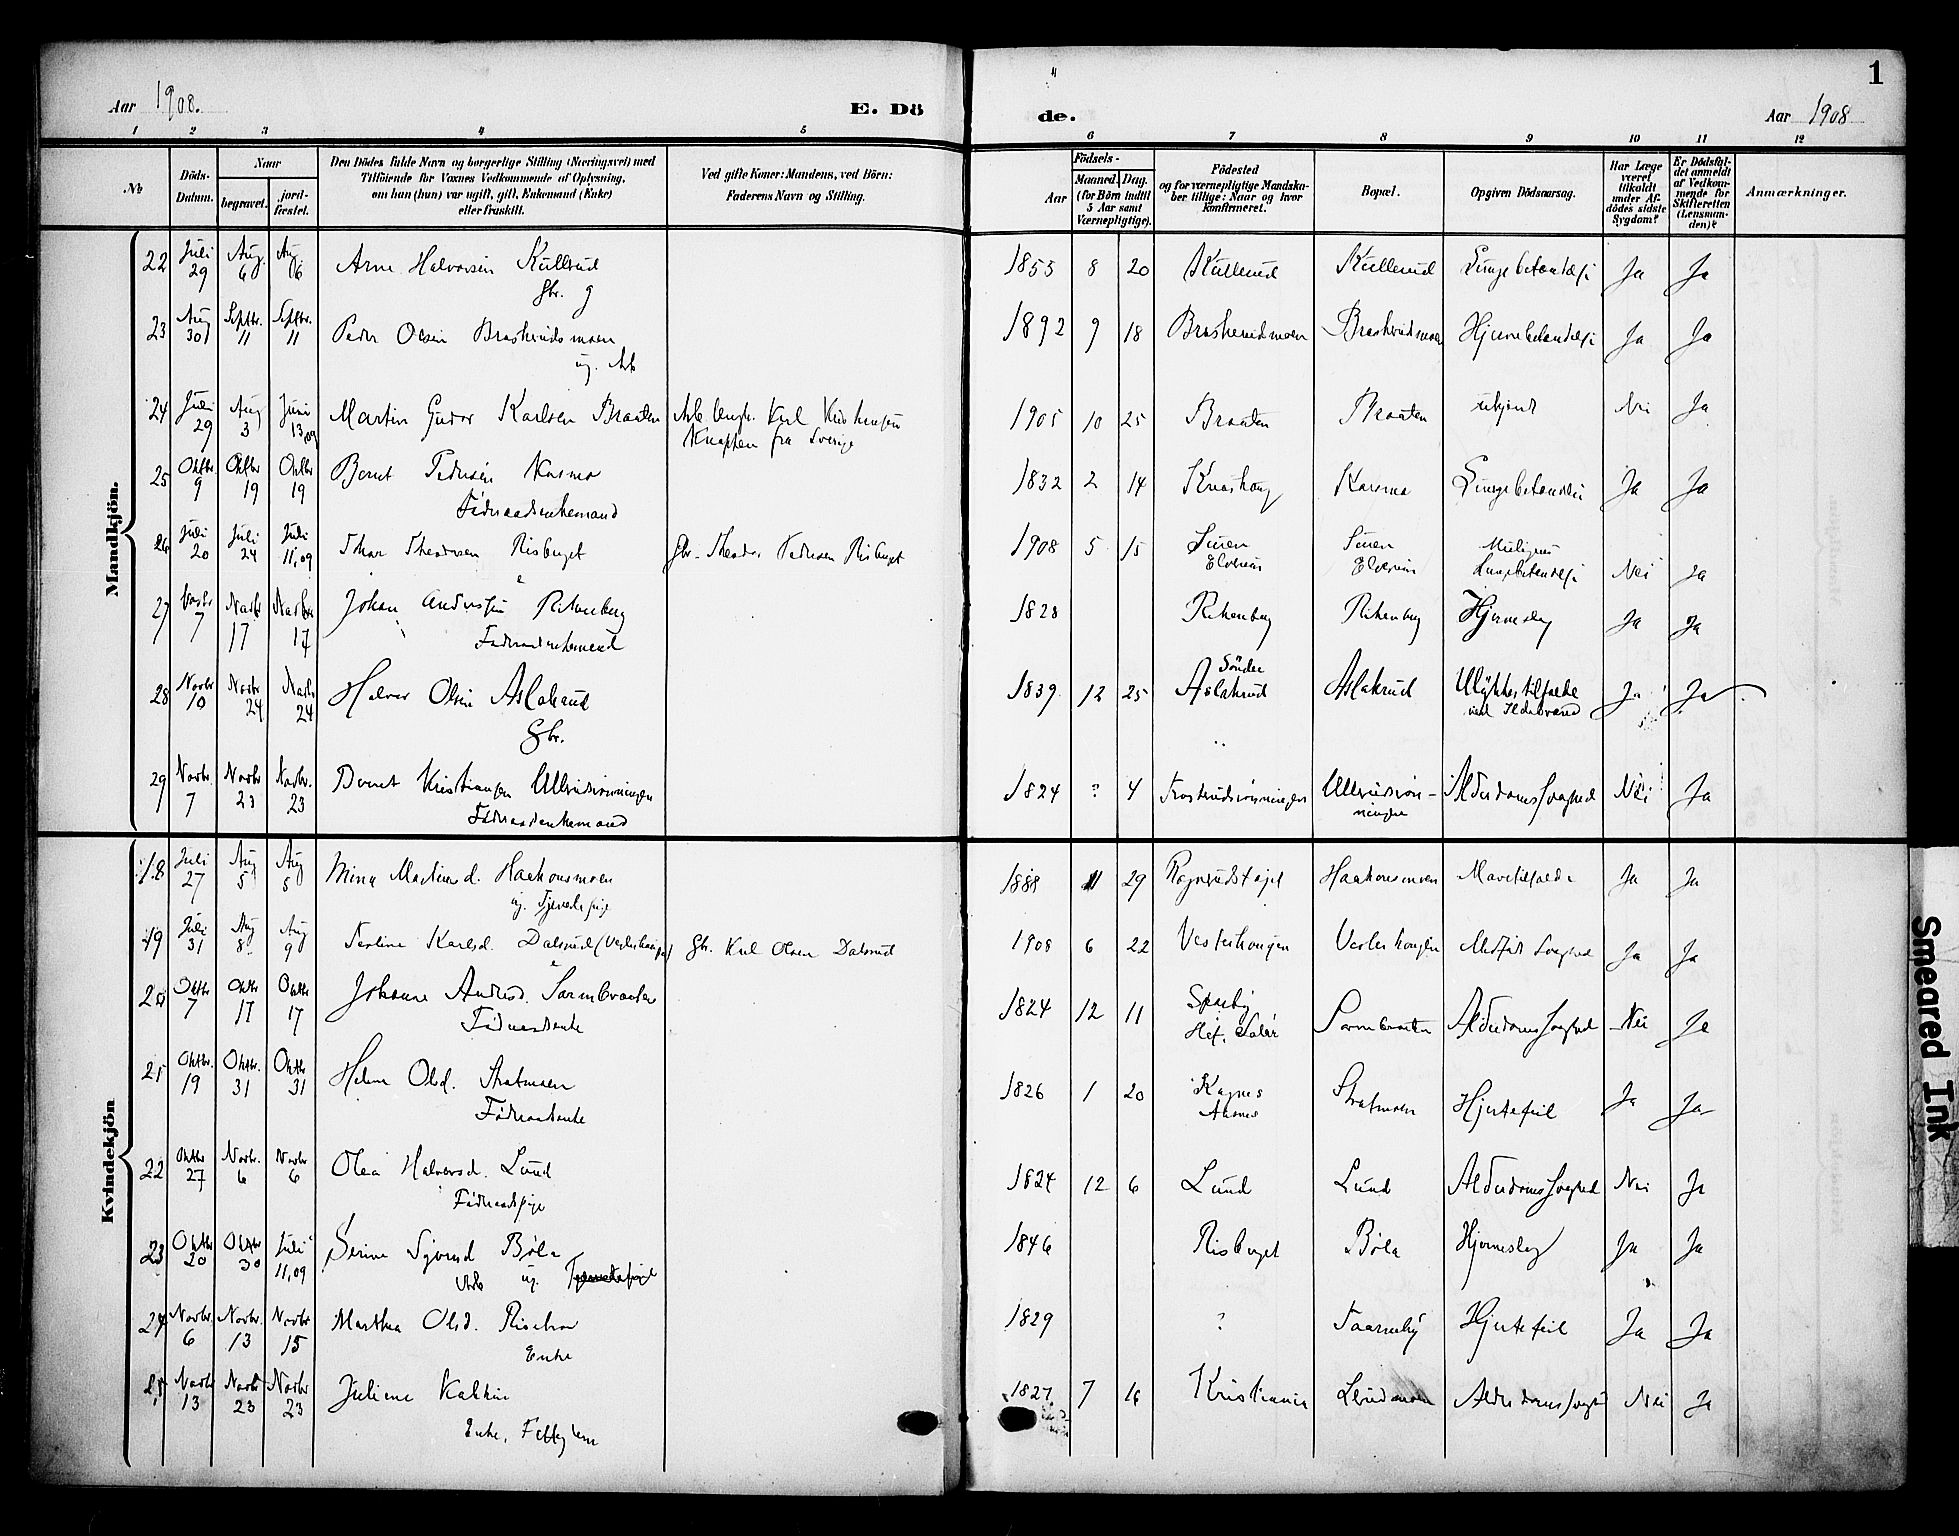 Aar 1908. E. Dö
de. Aar 1908
1
1 2 3 4 5
6 7 8 9 10 11 12
No
Döds-Datum.
Naar
begravet.
jordfæstet.
Den Dödes fulde Navn og borgerlige Stilling (Næringsvei) med
Tilföiende for Voxnes Vedkommende af Oplysning,
om han (hun) var ugift, gift, Enkemand (Enke)
eller fraskilt.
Ved gifte Koner: Mandens, ved Börn:
Faderens Navn og Stilling.
Födsels-
Aar
Maaned. Dag.
(for Börn indtil
5 Aar samt
Værnepligtige).
Födested
og for værnepligtige Mandska-
ber tillige: Naar og hvor
konfirmeret.
Bopæl.
Opgiven Dödsaarsag.
Har Læge
været
tilkaldt
under Af-
dödes sidste
Sygdom?
Er Dödsfal-
det anmeldt
af Vedkom-
mende for
Skifteretten
(Lensman-
den)?
Anmærkninger.
Mandkjön.
22 Juli 29 Aug. 6 Aug 6 Arne Halvorsen Kullerud 1853 8 20 Kullerud Kullerud Lungebetændelse Ja Ja
Gbr. g
23 Aug 30 Septbr. 11 Septbr. 11 Peder Olsen Braskerudsmoen 1892 9 18 Braskerudsmoen Braskerudsmoen Hjernebetændelse Ja Ja
ug. Arb
24 Juli 29 Aug 3 Juni 13,09 Martin Gudor Karlsen Braaten 1905 10 25 Braaten Braaten ukjendt Nei Ja
fra Sverige
25 Oktbr. 9 Oktbr 19 Oktbr 19 Bernt Pedersen Kasmo 1832 2 14 Lungebetændelse Ja Ja
Föderaadsenkemand
26 Juli 20 Juli 24 Juli 11,09 Theodorsen Risberget Gbr. Theodor Pedersen Risberget 1908 5 15 Nei Ja
Elverum Elverum Lungebetændelse
27 Novbr 7 Novbr 17 Novbr 17 Johan Andersen 1828 Hjerneslag Ja Ja
Föderaadsenkemand
28 Novbr 10 Novbr 24 Novbr 24 Halvor Olsen Aslakrud 1839. 12 25 Söndre Aslakrud Aslakrud Ulykkestilfælde Ja Ja
Gbr. ved Ildebrand
29 Novbr. 7 Novbr 23 Novbr. 23 Bernt Kristiansen 1824 ? 4 Alderdomssvaghed Nei Ja
Föderaadsenkemand
Kvindekjön
18 Juli 27 Aug 5 Aug 5 Mina Martinsd. Haakonsmoen 1888 11 29 Haakonsmoen Mavetilfælde Ja Ja
ug. Tjenestepige
19 Juli 31 Aug 8 Aug 9 Karlsd. Dalsrud (Vesterhaugen) Gbr. Karl Olsen Dalsrud 1908 6 22 Vesterhaugen Vesterhaugen Medfödt Svaghed Ja Ja
20 Oktbr 7 Oktbr 17 Oktbr 17 Johanne Andersd. Sormbraaten 1824 12 11 Sormbraaten Alderdomssvaghed Nei Ja
Föderaadsenke
21 Oktbr. 19 Oktbr. 31 Oktbr 31 Helene Olsd. Stratmoen 1826 1 20 Stratmoen Hjertefeil Ja Ja
Föderaadsenke
22 Oktbr 27 Novbr. 6 Novbr 6 Olea Halvorsd. Lund 1824 12 6 Lund Lund Alderdomssvaghed Nei Ja
Föderaadspige
23 Oktbr 20 Oktbr 30 Juli 11,09 Serine Bøla 1846 Risberget Bøla Hjerneslag Ja Ja
Arb ug. Tjenestepige
24 Novbr. 6 Novbr. 13 Novbr 15 Marthea Olsd. 1829 ? Hjertefeil Ja Ja
Enke
25 Novbr 13 Novbr 23 Novbr 23 Juliane 1827 7 16 Kristiania Alderdomssvagh Nei Ja
Enke,
Smeared Ink